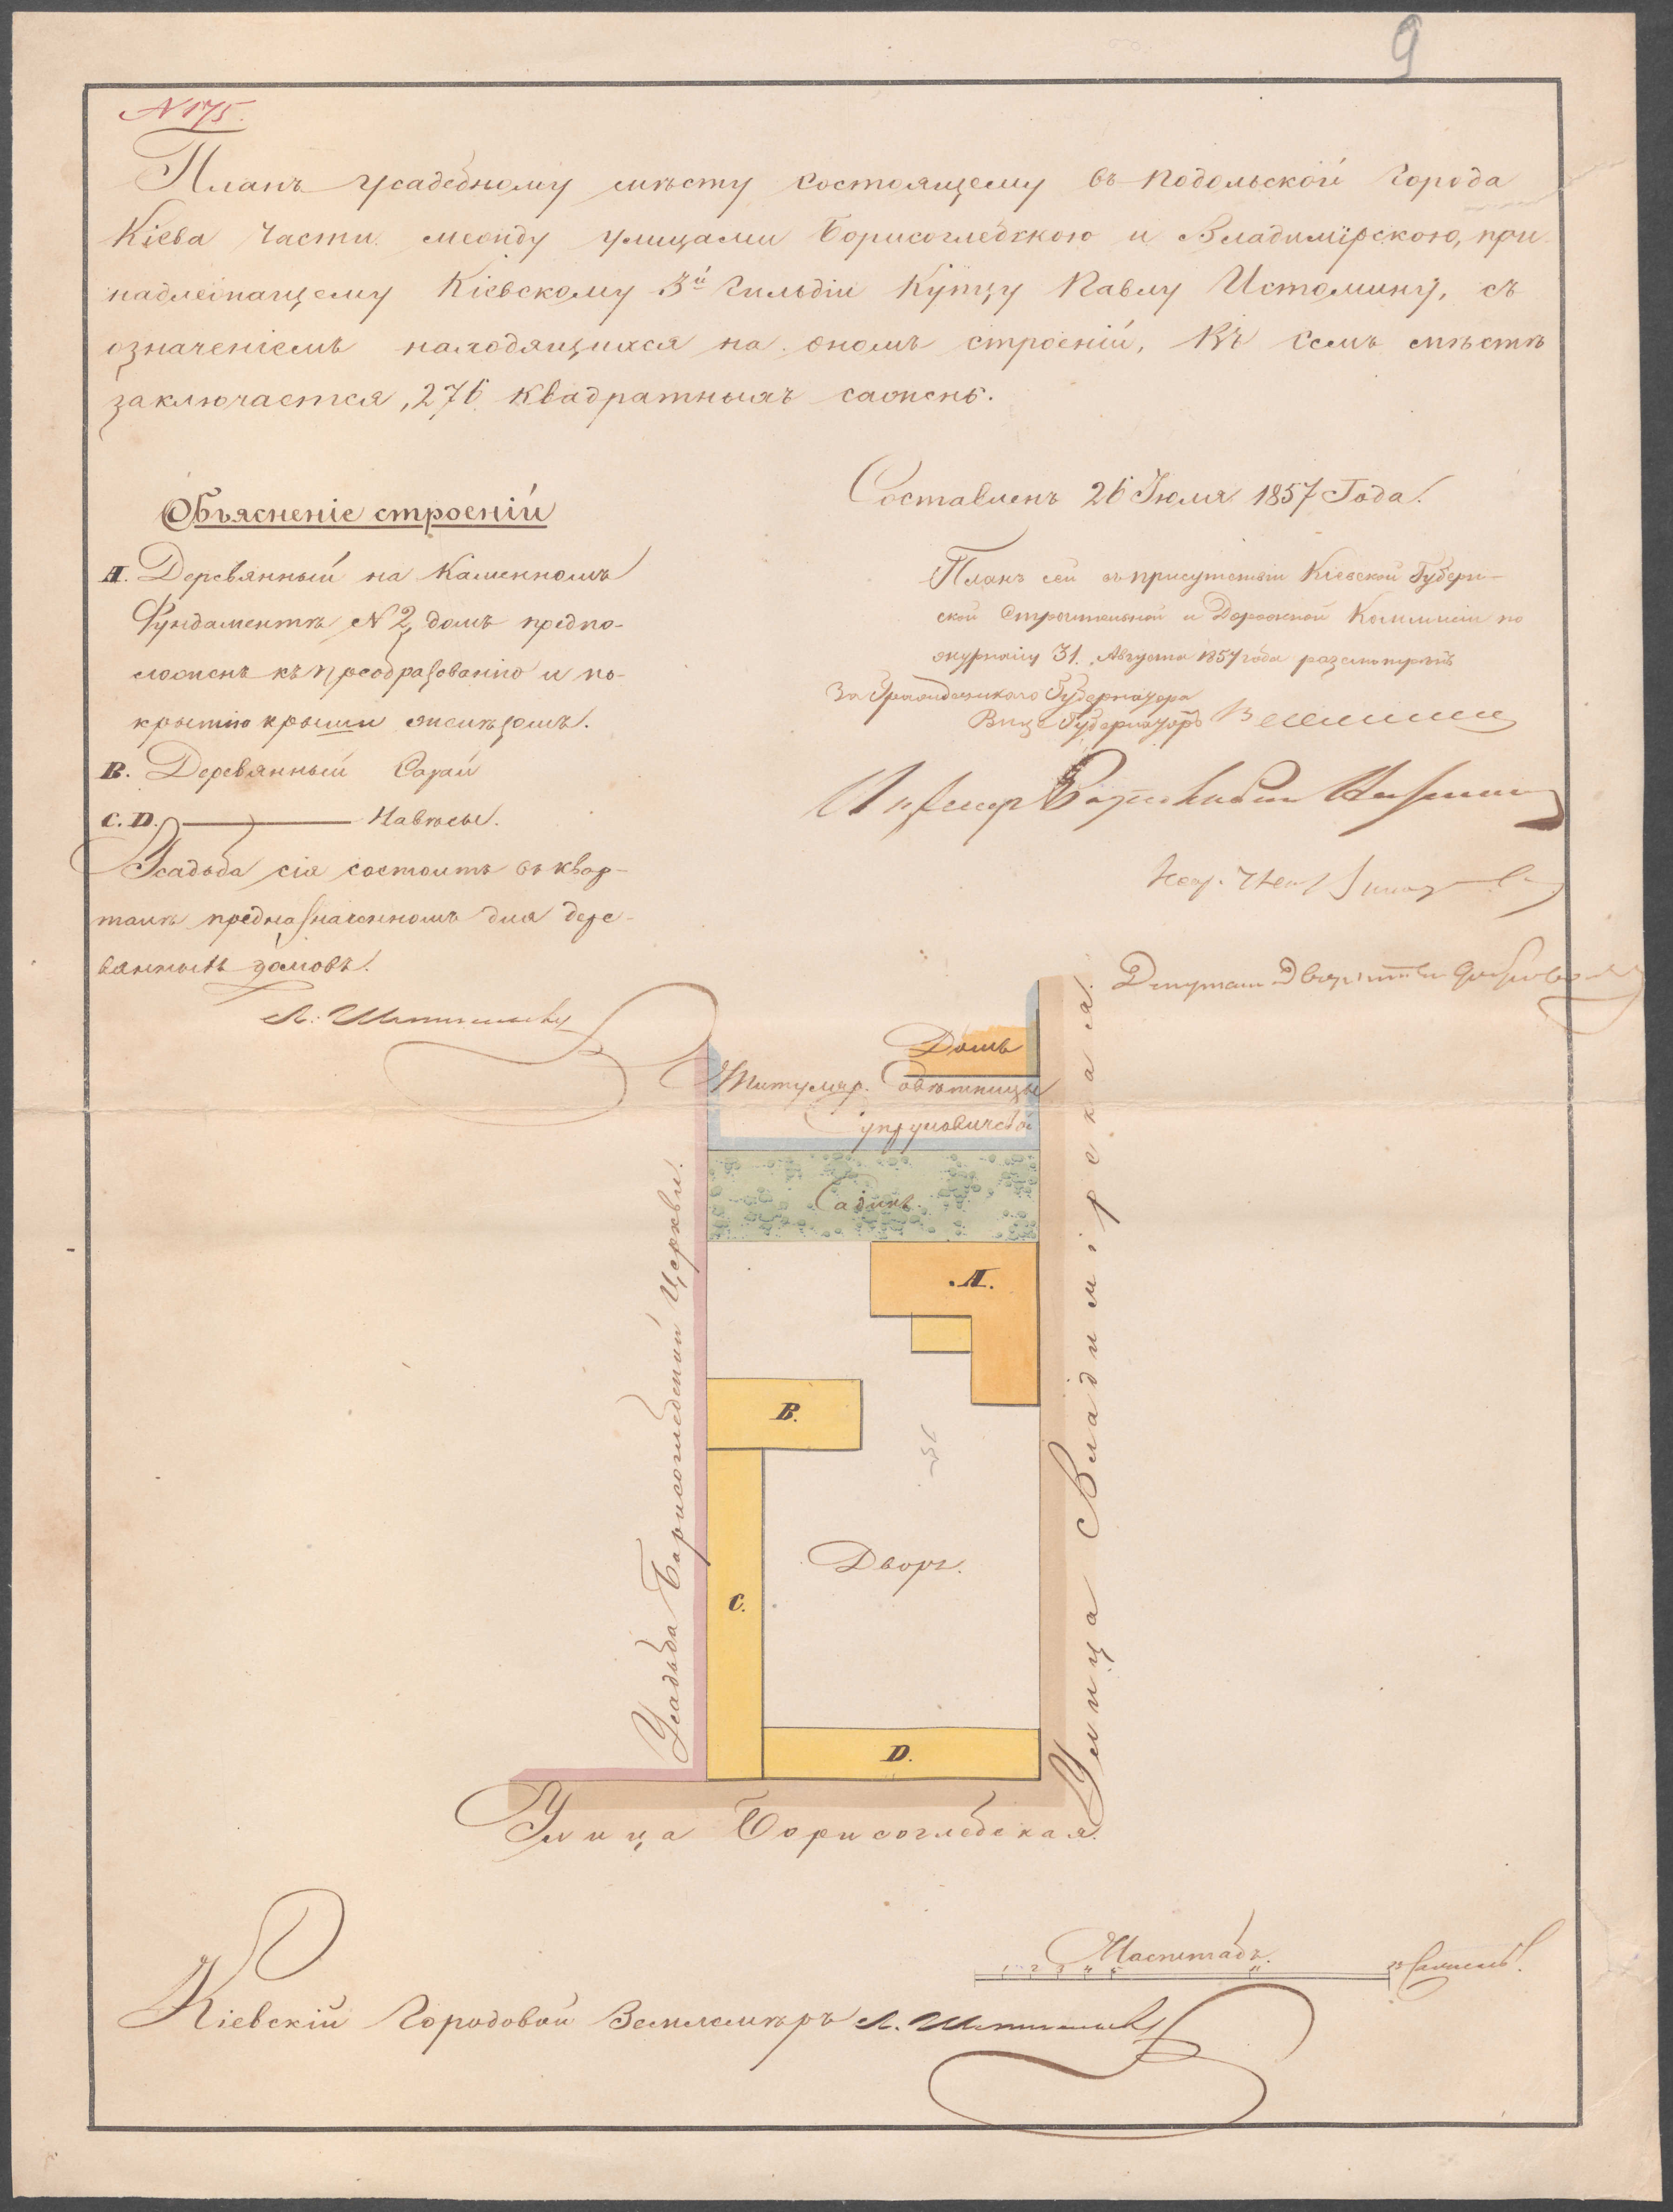 9
N 175.
Планъ усадебному мѣсту состоящему въ подольской города
Кіева части между улицами Борисоглебскою и Владимірскою, при-
надлежащему Кіевскому 3й гильдіи Купцу Павлу Истомину, съ
означеніемъ находящихся на ономъ строеній, Въ семъ мѣстѣ
заключается, 276 квадратныхъ саженъ.
Составленъ 26 Іюля 1857 Года.
Объясненіе строеній
A. Деревянный на Каменномъ
Фундаментѣ N 2 домъ предпо-
ложенъ къ преобразованію и по-
крытію крыши желѣзомъ.
B. Деревянный Сарай
C. D. Навѣсы.
Усадьба сія состоитъ въ квар-
талѣ предназначенномъ для дере-
вянныхъ домовъ.
Планъ сей въ присутствіи Кіевской Губерн-
ской Строительной и Дорожной Коммисіи по
журналу 31. Августа 1857 года разсмотрѣнъ
За Гражданскаго Губернатора
Вице Губернаторъ
Депутат Дворянства
Домъ
Титуляр. Совѣтницы
Садикъ
A.
B.
C.
D.
Дворъ.
Усадьба Борисоглебской Церкви.
Улица Владимірская.
Улица Борисоглебская.
Масштабъ.
1 2 3 4 5
Саженъ.
Кіевскій Городовой Землемѣръ